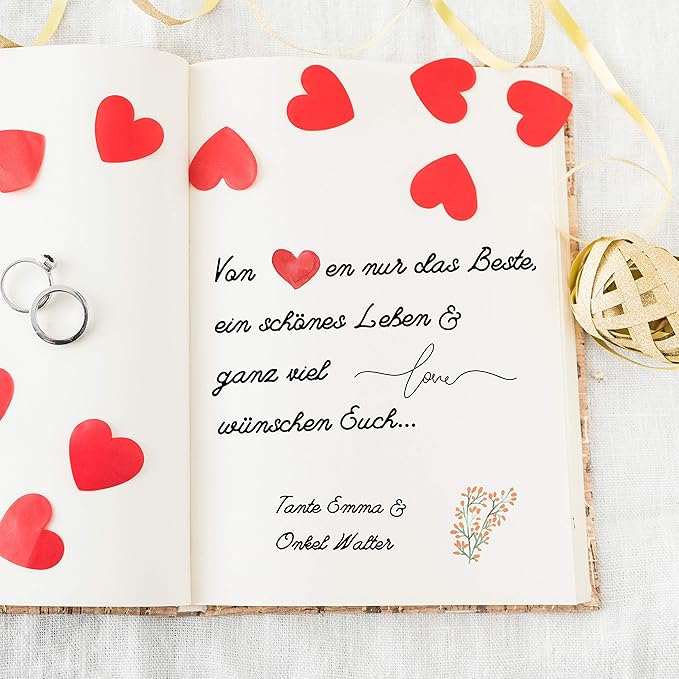 Von ❤en nur das Beste,
ein schönes Leben &
ganz viel love
wünschen Euch...
Tante Emma &
Onkel Walter